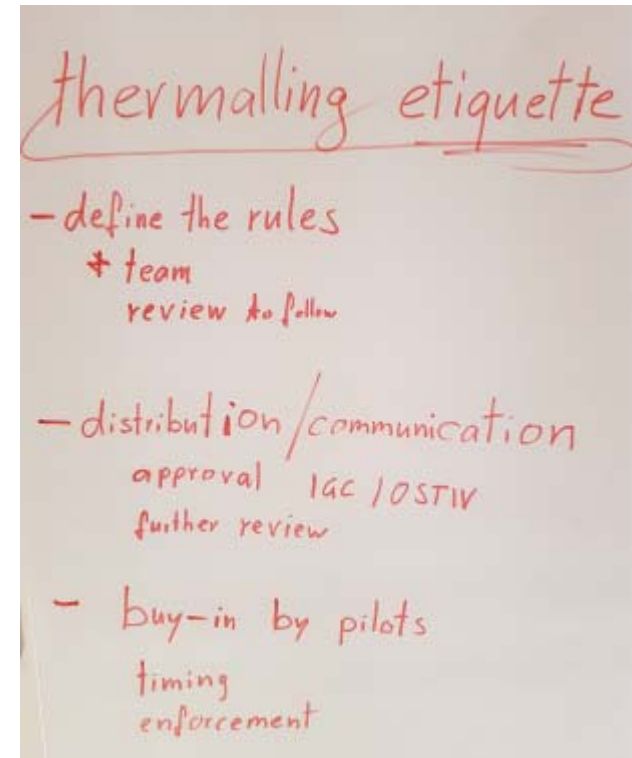 thermalling etiquette
- define the rules
+ team
review to follow
- distribution/communication
approval IGC / OSTIV
further review
- buy-in by pilots
timing
enforcement